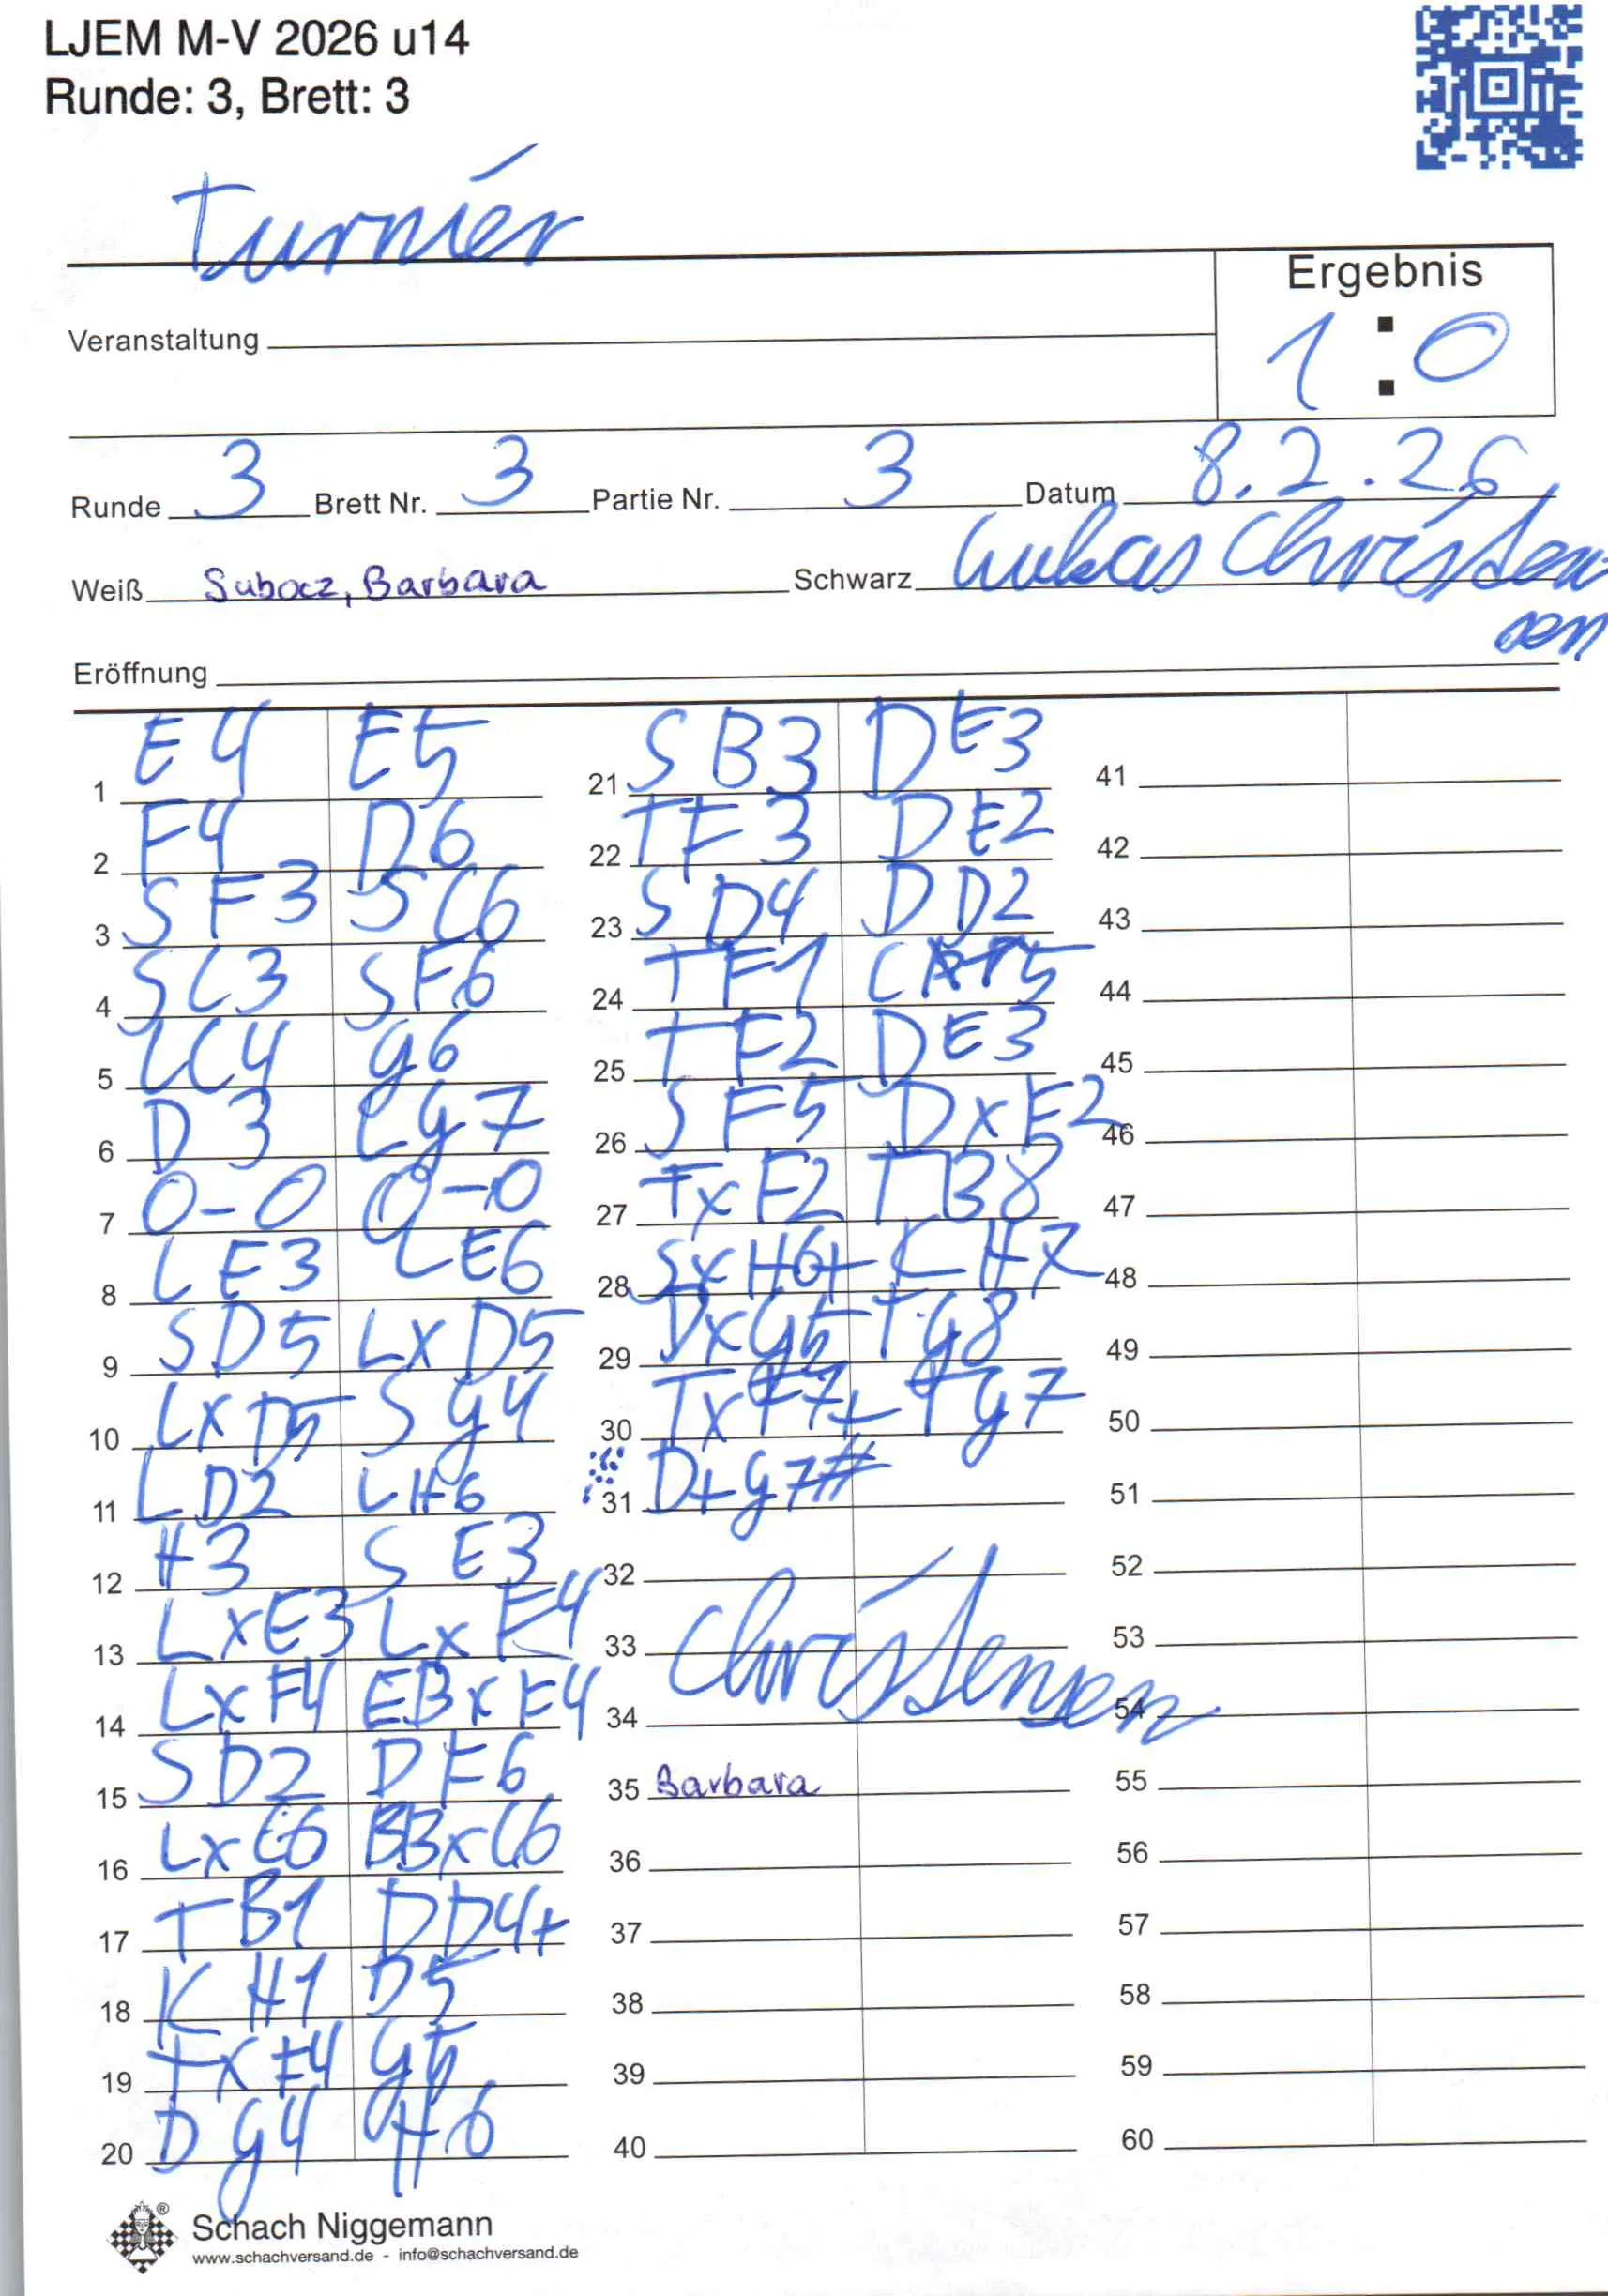 LJEM M-V 2026 u14
Runde: 3, Brett: 3
Turnier
Ergebnis
1 : 0
Veranstaltung
Runde 3 Brett Nr. 3 Partie Nr. 3 Datum 8.2.26
Weiß Subocz, Barbara Schwarz Lukas Christen
sen
Eröffnung
1 E4 E5
2 F4 D6
3 SF3 SC6
4 SC3 SF6
5 LC4 g6
6 D3 Lg7
7 0-0 0-0
8 LE3 LE6
9 SD5 LxD5
10 LxD5 Sg4
11 LD2 LH6
12 H3 SE3
13 LxE3 LxF4
14 LxF4 EBxF4
15 SD2 DF6
16 LxC6 BBxC6
17 TB1 DD4+
18 KH1 D5
19 TxF4 g5
20 Dg4 H6
21 SB3 DE3
22 TF3 DE2
23 SD4 DD2
24 TF1 C5
25 TF2 DE3
26 SF5 DxF2
27 TxF2 TB8
28 SxH6+ KH7
29 Dxg5 Tg8
30 TxF7+ Tg7
31 D+g7#
32
33 Christensen
34
35 Barbara
36
37
38
39
40
41
42
43
44
45
46
47
48
49
50
51
52
53
54
55
56
57
58
59
60
Schach Niggemann
www.schachversand.de - info@schachversand.de